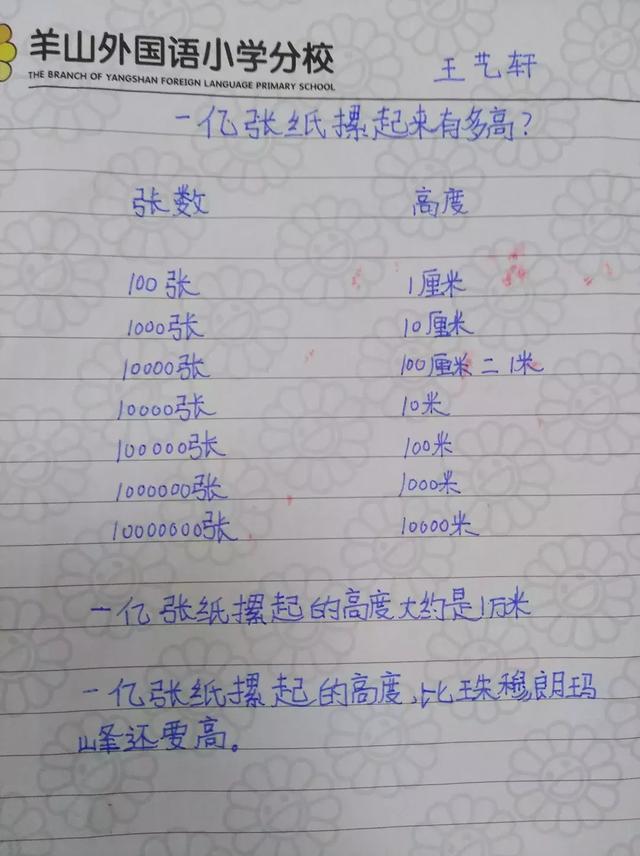 羊山外国语小学分校
THE BRANCH OF YANGSHAN FOREIGN LANGUAGE PRIMARY SCHOOL
王艺轩
一亿张纸摞起来有多高?
张数 高度
100张 1厘米
1000张 10厘米
10000张 100厘米=1米
10000张 10米
100000张 100米
1000000张 1000米
10000000张 10000米
一亿张纸摞起的高度大约是1万米
一亿张纸摞起的高度,比珠穆朗玛
峰还要高。